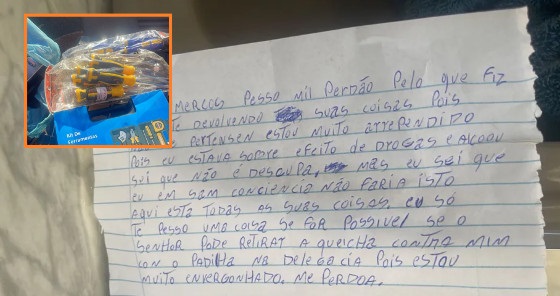 Kit De
Ferramentas
MERCOS PESSO MIL PERDÃO PELO QUE FIZ
TE DEVOLVENDO SUAS COISAS POIS
PERTENSEN ESTOU MUITO ARREPENDIDO
POIS EU ESTAVA SOBRE EFEITO DE DROGAS E ALCOOU
SEI QUE NÃO E DESCUPA, MAS EU SEI QUE
EU EM SAM CONCIENCIA NÃO FARIA ISTO
AQUI ESTA TODAS AS SUAS COISAS. EU SÓ
TE PESSO UMA COISA SE FOR POSSIVEL SE O
SENHOR PODE RETIRAR A QUEICHA CONTRA MIM
CON O PADILHA NA DELEGACIA POIS ESTOU
MUITO ENVERGONHADO. ME PERDOA.